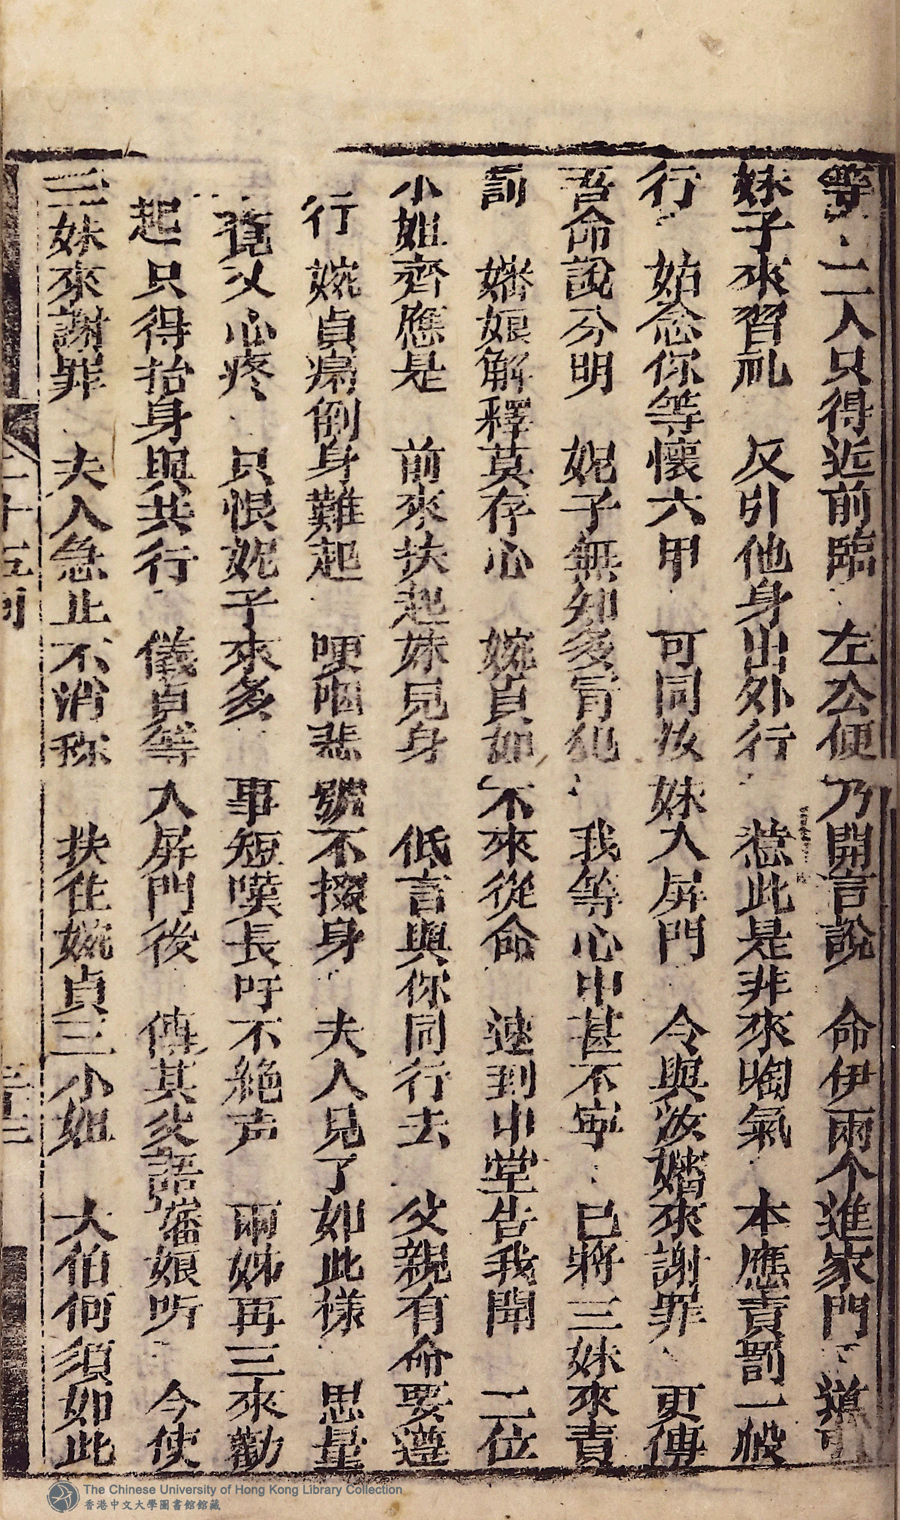 等 二人只得近前臨 左公便乃開言說 命伊兩个進家門 道引
妹子來習礼 反引他身出外行 惹此是非來啕氣 本應責罰一般
行 姑念你等懷六甲 可同汝妹入屏門 令與汝嬸來謝罪 更傳
吾命說分明 妮子無知多冐犯 我等心中甚不寧 已將三妹來責
罰 嬸娘解釋莫存心 婉貞如不來從命 速到中堂告我聞 二位
小姐齊應是 前來扶起妹見身 低言與你同行去 父親有命要遵
行 婉貞痛倒身難起 哽咽悲號不掇身 夫人見了如此樣 思量
竟又心疼 只恨妮子來多事 短嘆長吁不絕声 兩姊再三來勸
起 只得抬身與共行 儀貞等人屏門後 傳其父語嬸娘听 今使
三妹來謝罪 夫人急止不消称 扶住婉貞三小姐 大伯何須如此
二十五
The Chinese University of Hong Kong Library Collection
香港中文大學圖書館館藏